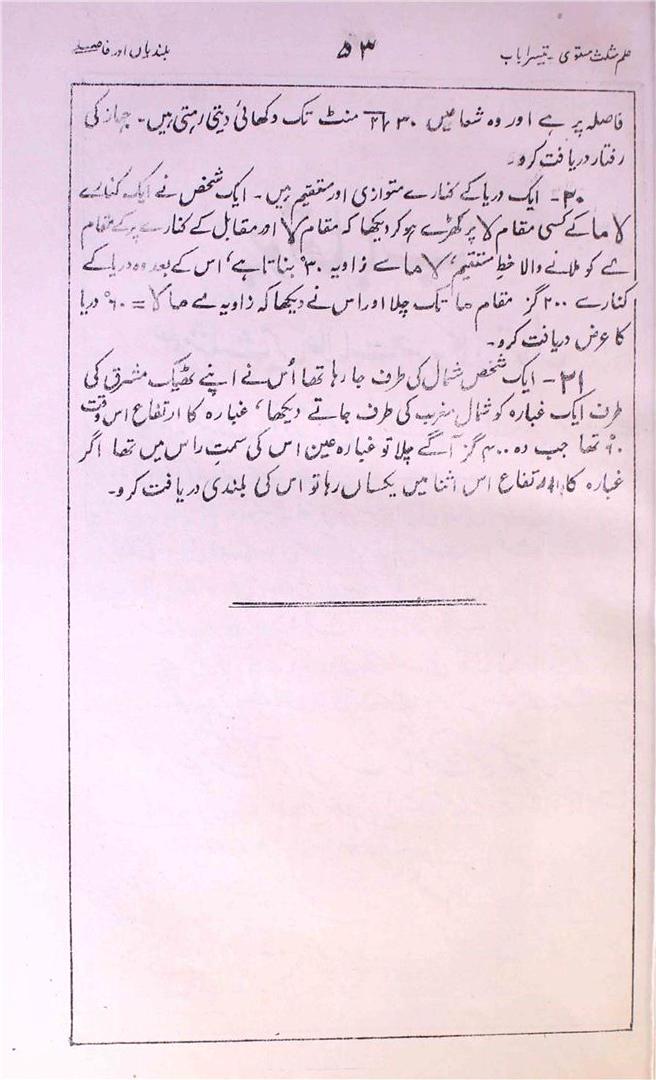 علم مثلث مستوی۔ تیسرا باب
۵۳
بلندیاں اور فاصلے
فاصلہ پر ہے اور وہ شعاعیں ۳۰ √۲ منٹ تک دکھائی دیتی رہتی ہیں۔ جہاز کی
رفتار دریافت کرو۔
۳۰۔ ایک دریا کے کنارے متوازی اور مستقیم ہیں۔ ایک شخص نے ایک کنارے
لا ما کے کسی مقام لا پر کھڑے ہو کر دیکھا کہ مقام لا اور مقابل کے کنارے پر کے مقام
ے کو ملانے والا خط مستقیم، لا ما سے زاویہ ۳۰° بناتا ہے، اس کے بعد وہ دریا کے
کنارے ۲۰۰ گز مقام ما تک چلا اور اس نے دیکھا کہ زاویہ ے ما لا = ۶۰° دریا
کا عرض دریافت کرو۔
۳۱۔ ایک شخص شمال کی طرف جا رہا تھا اُس نے اپنے ٹھیک مشرق کی
طرف ایک غبارہ کو شمال مغرب کی طرف جاتے دیکھا، غبارہ کا ارتفاع اس وقت
۶۰° تھا جب وہ ۴۰۰ گز آگے چلا تو غبارہ عین اس کی سمتِ راس میں تھا اگر
غبارہ کا ارتفاع اس اثنا میں یکساں رہا تو اس کی بلندی دریافت کرو۔